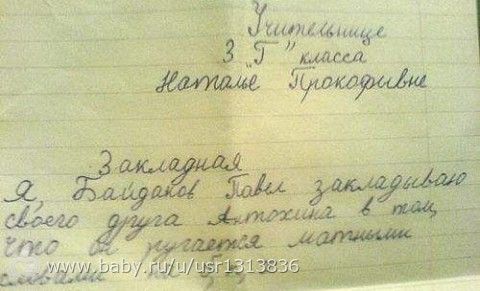 Учительнице
3 "Г" класса
Наталье Прокофивне
Закладная
Я, Байдаков Павел закладываю
своего друга Антохина в том,
что он ругается матными
словами на
www.baby.ru/u/usr1313836